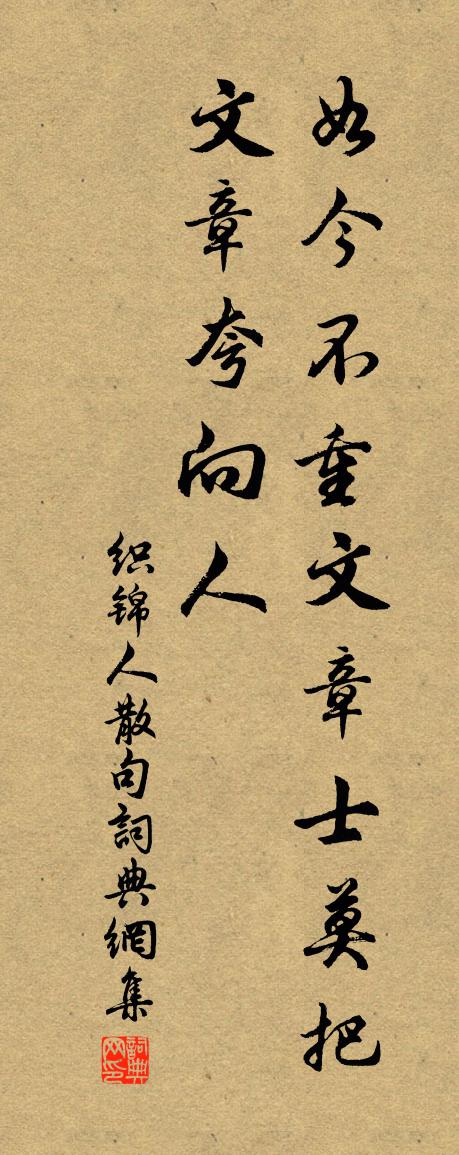 如今不重文章士莫把
文章夸向人
织锦人散句詞典網集
詞典网印